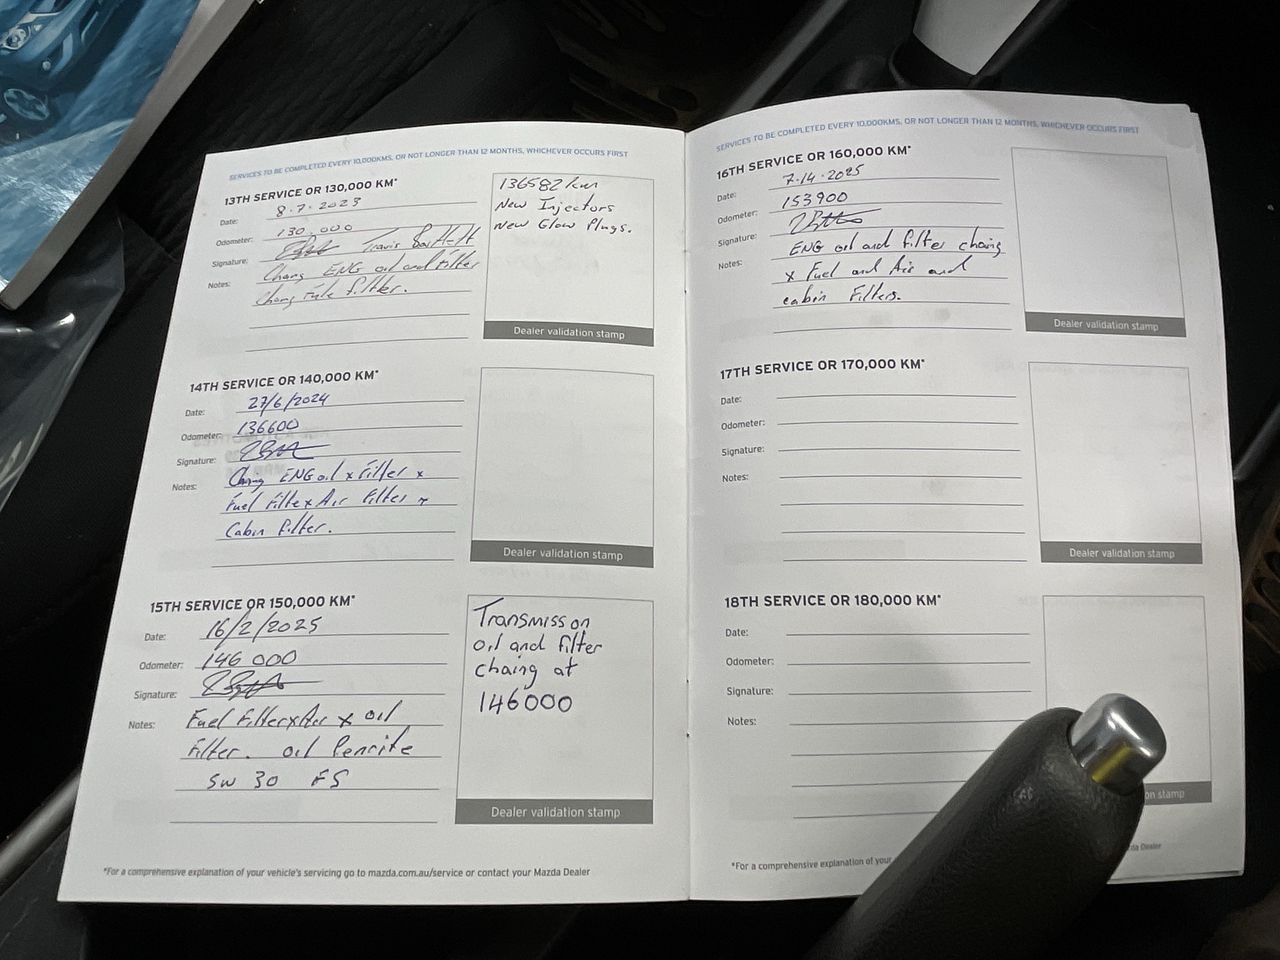 SERVICES TO BE COMPLETED EVERY 10,000KMS, OR NOT LONGER THAN 12 MONTHS, WHICHEVER OCCURS FIRST
13TH SERVICE OR 130,000 KM*
Date: 8.7.2023
Odometer: 130.000
Signature: Travis Bartlett
Notes: Chang ENG oil and Filter
Chang Fule filter.
136582 km
New Injectors
New Glow Plugs.
Dealer validation stamp
14TH SERVICE OR 140,000 KM*
Date: 27/6/2024
Odometer: 136600
Signature:
Notes: Chaing ENG oil x Filter x
Fuel Filte x Air Filter x
Cabin Filter.
Dealer validation stamp
15TH SERVICE OR 150,000 KM*
Date: 16/2/2025
Odometer: 146 000
Signature:
Notes: Fuel Filter x Air x oil
Filter. oil Penrite
5w 30 FS
Transmisson
oil and filter
chaing at
146000
Dealer validation stamp
*For a comprehensive explanation of your vehicle's servicing go to mazda.com.au/service or contact your Mazda Dealer
SERVICES TO BE COMPLETED EVERY 10,000KMS, OR NOT LONGER THAN 12 MONTHS, WHICHEVER OCCURS FIRST
16TH SERVICE OR 160,000 KM*
Date: 7.14.2025
Odometer: 153900
Signature:
Notes: ENG oil and filter chaing
x Fuel and Air and
cabin Filters.
Dealer validation stamp
17TH SERVICE OR 170,000 KM*
Date:
Odometer:
Signature:
Notes:
Dealer validation stamp
18TH SERVICE OR 180,000 KM*
Date:
Odometer:
Signature:
Notes:
on stamp
*For a comprehensive explanation of your
Dealer